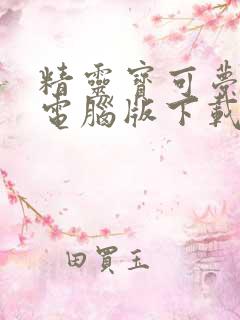 精靈寶可夢
電腦版下載
田買玉